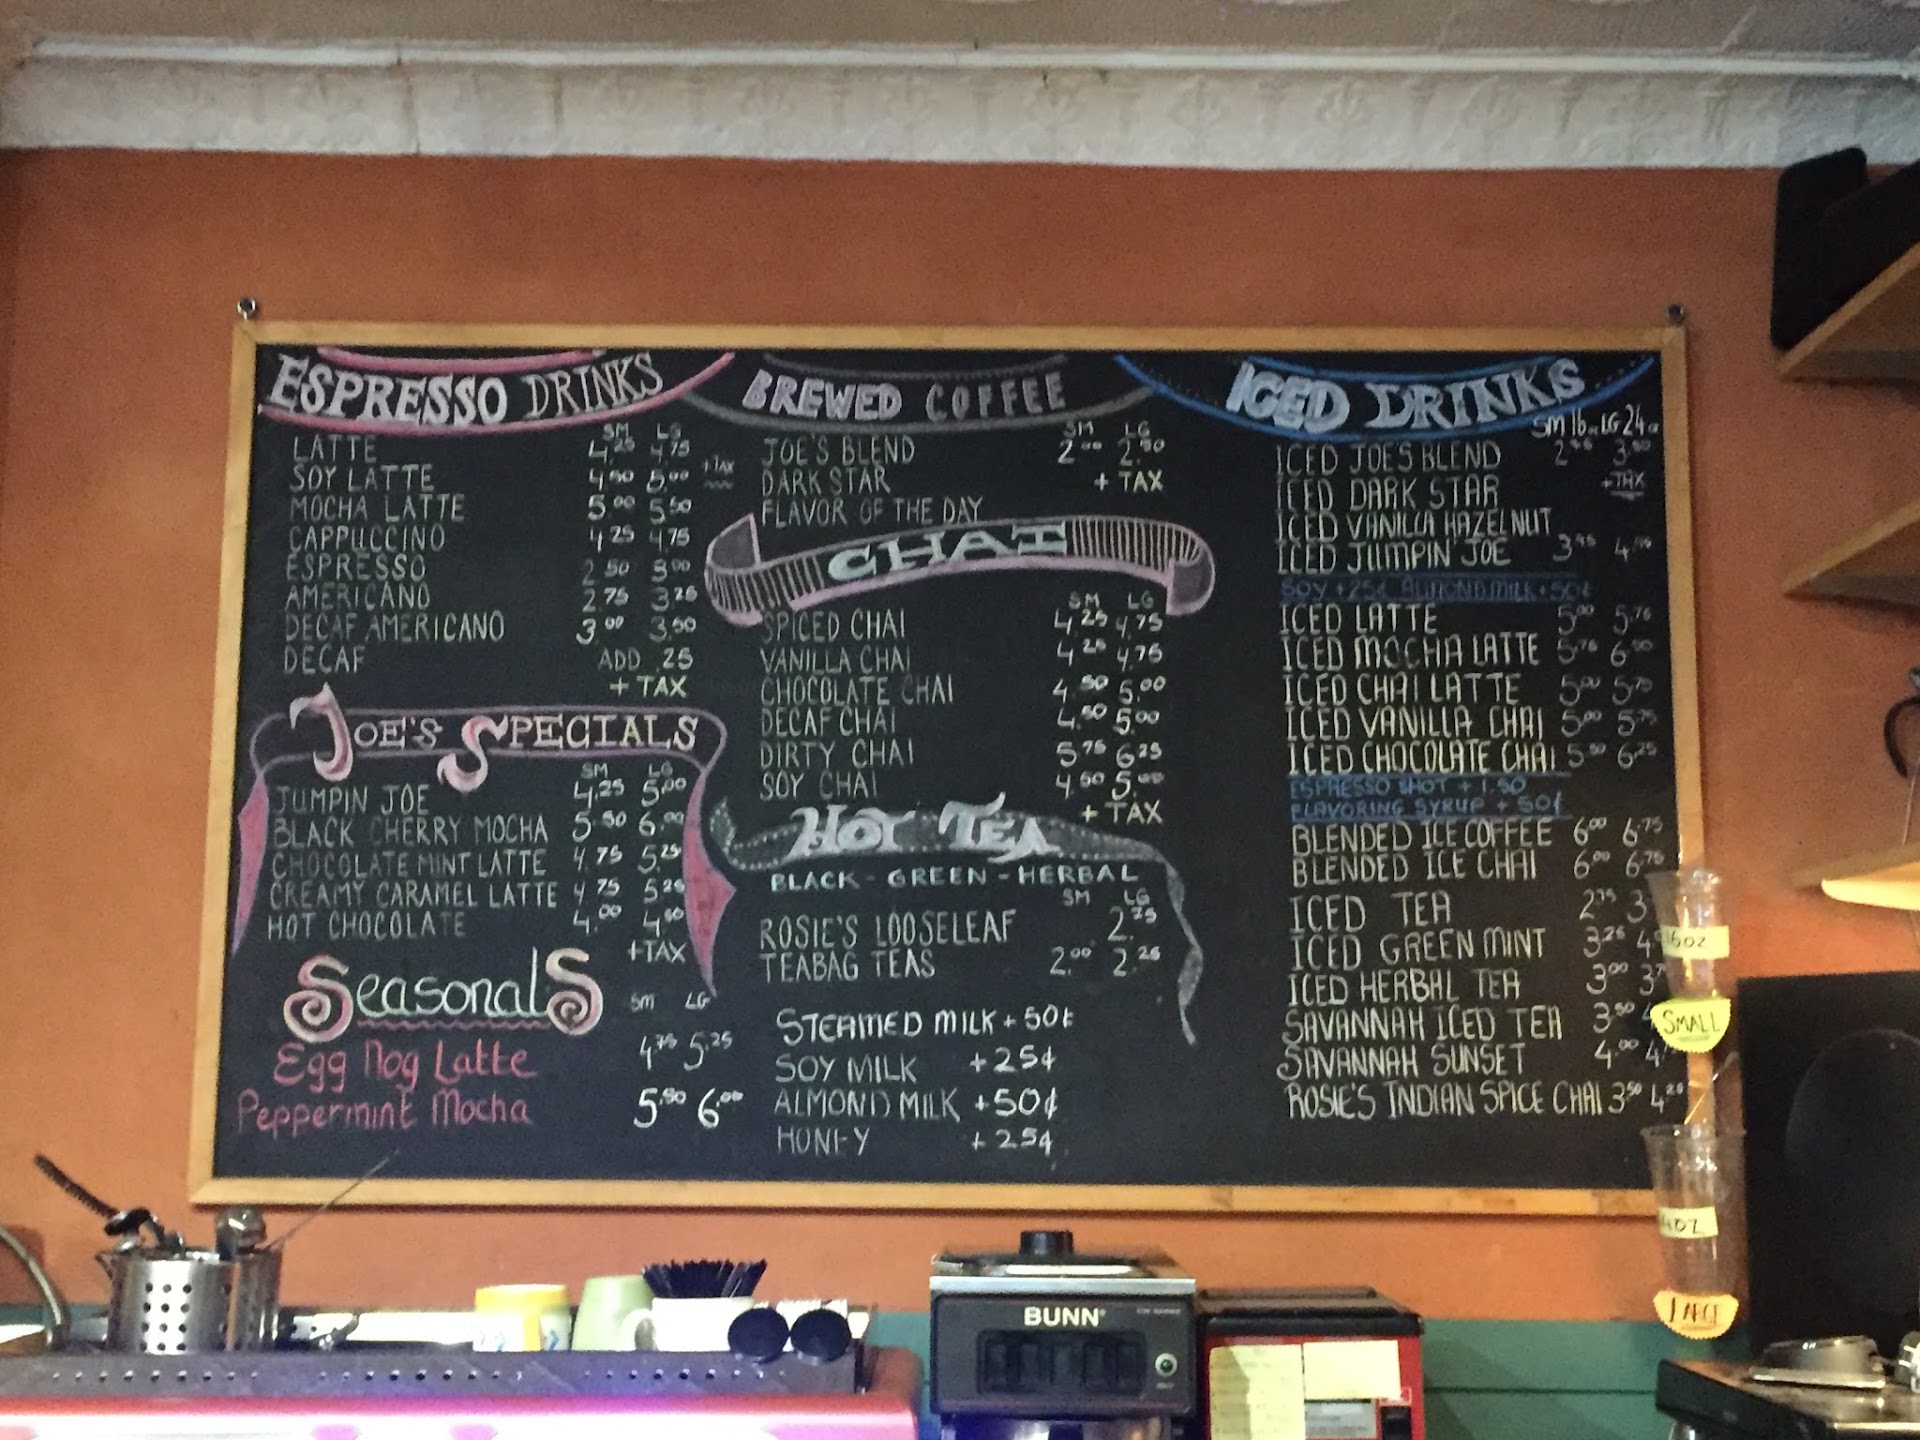 ESPRESSO DRINKS
SM LG
LATTE 4.25 4.75
SOY LATTE 4.50 5.00 +TAX
MOCHA LATTE 5.00 5.50
CAPPUCCINO 4.25 4.75
ESPRESSO 2.50 3.00
AMERICANO 2.75 3.25
DECAF AMERICANO 3.00 3.50
DECAF ADD .25
+ TAX
JOE'S SPECIALS
SM LG
JUMPIN JOE 4.25 5.00
BLACK CHERRY MOCHA 5.50 6.00
CHOCOLATE MINT LATTE 4.75 5.25
CREAMY CARAMEL LATTE 4.75 5.25
HOT CHOCOLATE 4.00 4.50
+TAX
SeasonalS
SM LG
Egg Nog Latte 4.75 5.25
Peppermint Mocha 5.50 6.00
BREWED COFFEE
SM LG
JOE'S BLEND 2.00 2.50
DARK STAR + TAX
FLAVOR OF THE DAY
CHAI
SM LG
SPICED CHAI 4.25 4.75
VANILLA CHAI 4.25 4.75
CHOCOLATE CHAI 4.50 5.00
DECAF CHAI 4.50 5.00
DIRTY CHAI 5.75 6.25
SOY CHAI 4.50 5.00
+ TAX
HOT TEA
BLACK - GREEN - HERBAL
SM LG
ROSIE'S LOOSELEAF 2.75
TEABAG TEAS 2.00 2.25
STEAMED MILK + 50¢
SOY MILK +25¢
ALMOND MILK +50¢
HONEY +25¢
ICED DRINKS
SM 16oz LG 24oz
ICED JOES BLEND 2.75 3.50
ICED DARK STAR +TAX
ICED VANILLA HAZELNUT
ICED JUMPIN' JOE
SOY +25¢ ALMOND MILK +50¢
ICED LATTE 5.00 5.75
ICED MOCHA LATTE 5.75 6.50
ICED CHAI LATTE 5.00 5.75
ICED VANILLA CHAI 5.00 5.75
ICED CHOCOLATE CHAI 5.50 6.25
ESPRESSO SHOT + 1.50
FLAVORING SYRUP + 50¢
BLENDED ICE COFFEE 6.00 6.75
BLENDED ICE CHAI 6.00 6.75
ICED TEA 2.75 3
ICED GREEN MINT 3.25 4
ICED HERBAL TEA 3.00 3
SAVANNAH ICED TEA 3.50 4
SAVANNAH SUNSET 4.00 4
ROSIE'S INDIAN SPICE CHAI 3.50 4.25
16oz
SMALL
LARGE
BUNN